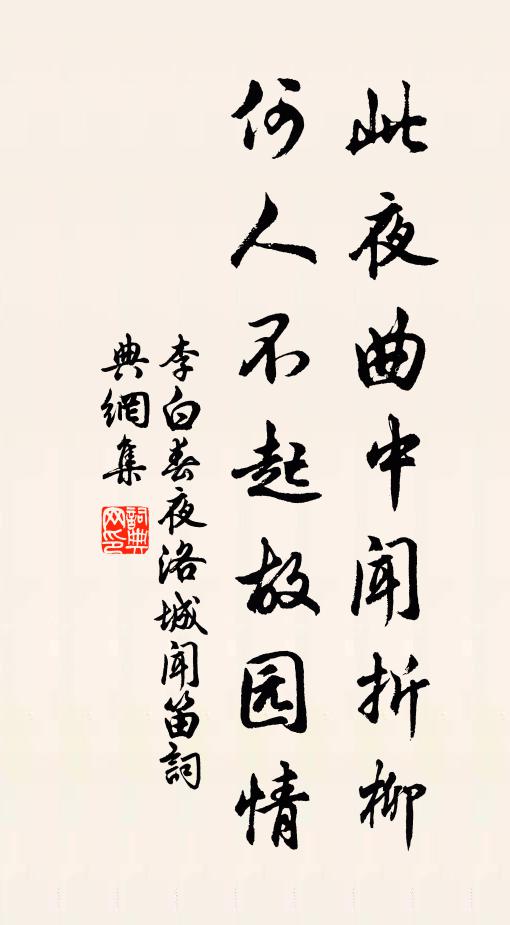 此夜曲中闻折柳
何人不起故园情
李白春夜洛城闻笛詞
典網集
詞典
网印